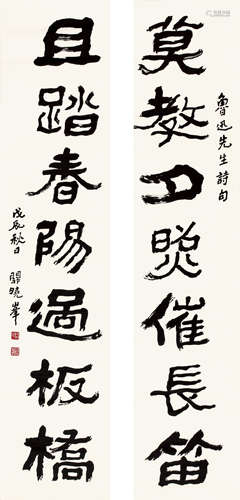 魯迅先生詩句
莫教夕照催長笛
且踏春陽過板橋
戊辰秋日
關曉峯